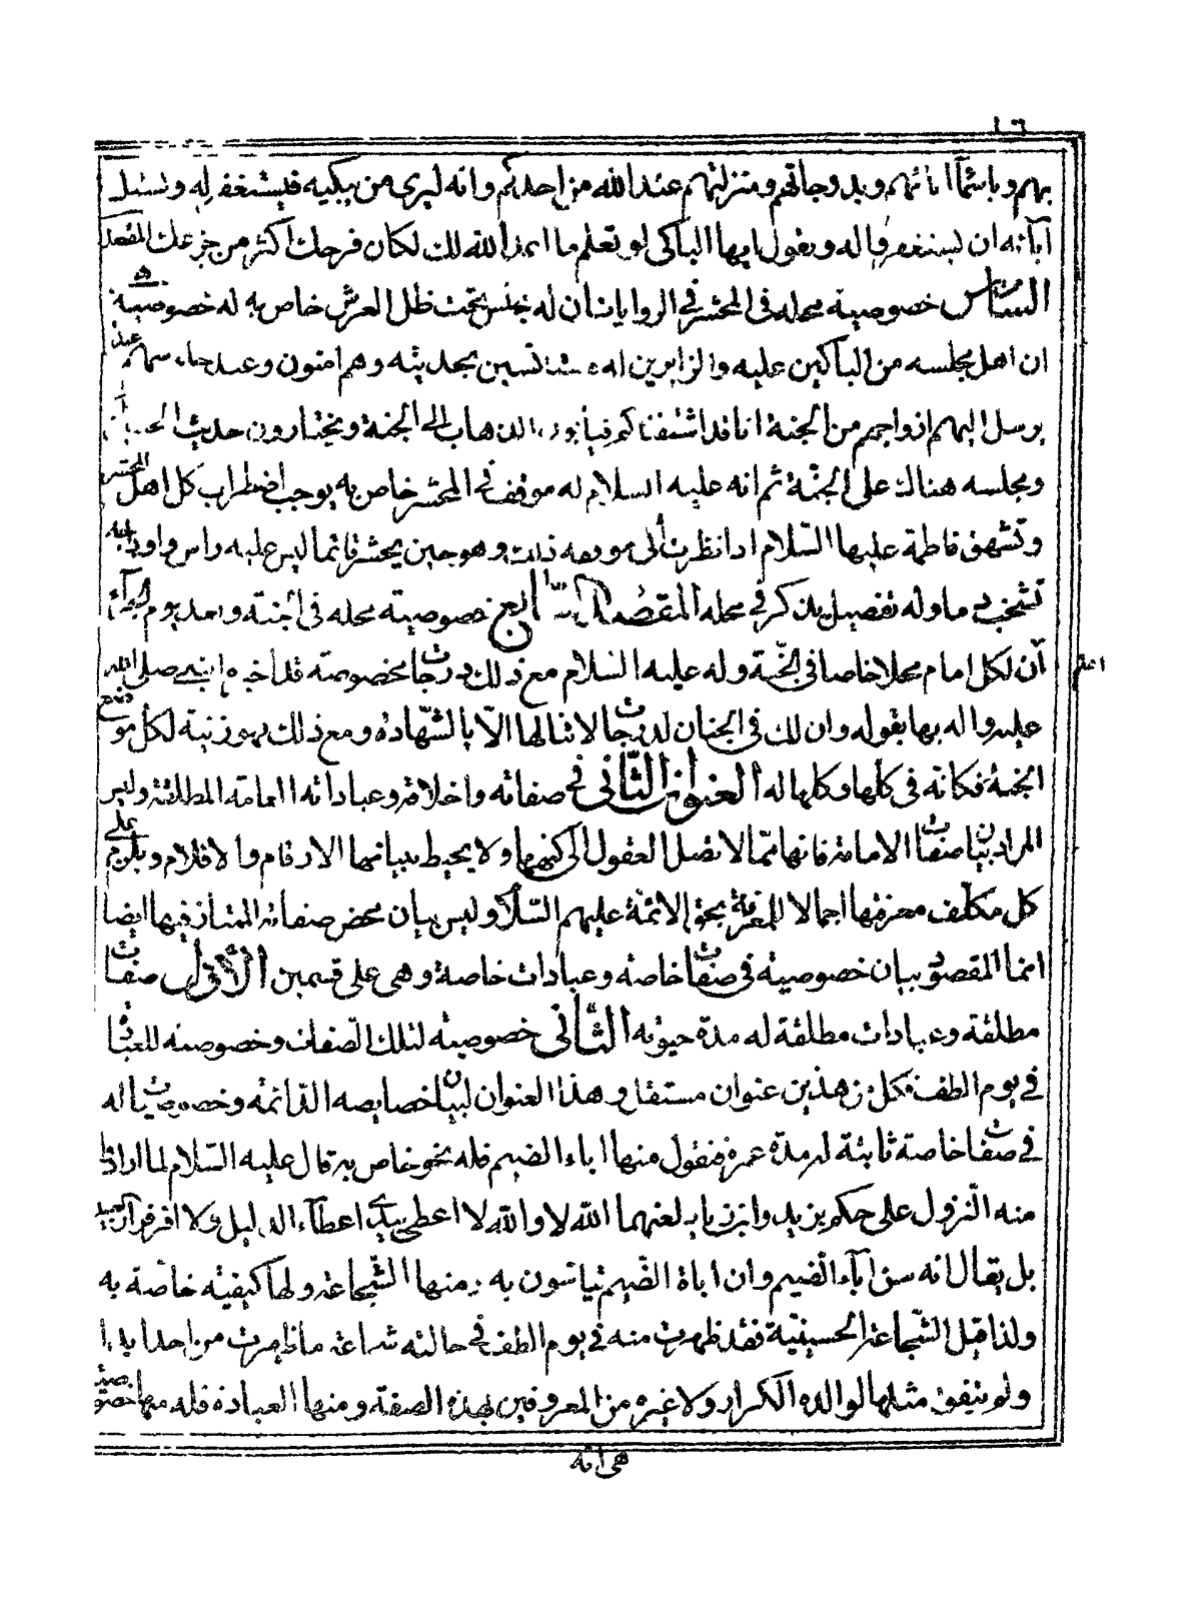 ١٦
بهم وباسمآء ابائهم وبدرجاتهم ومنزلتهم عند الله من احدكم وانه ليرى من يبكيه فيستغفر له ويسئل
آبائه ان يستغفروا له ويقول ايها الباكى لو تعلم ما اعد الله لك لكان فرحك اكثر من جزعك المقصد
السادس خصوصية محله فى المحشر فى الروايات ان له مجلس تحت ظل العرش خاص به له خصوصية هى
ان اهل مجلسه من الباكين عليه والزايرين له مستانسين بحديثه وهم امنون وعند
يرسل اليهم ازواجهم من الجنة انا قد اشتقناكم فيأبون الذهاب الى الجنة ويختارون حديث
ومجلسه هناك على الجنّة ثم انه عليه السلام له موقف فى المحشر خاص به يوجب اضطراب كل اهل المحشر
وتشهق فاطمة عليها السّلام اذا نظرت الى وهو حين يحشر قائما ليس عليه راس واوداجه
تشخب دما وله تفصيل يذكر فى محله المقصد السّابع خصوصية محله فى الجنة وبعد يوم الجزآء
اعلم
أن لكل امام محلا خاصا فى الجنّة وله عليه السلام مع ذلك درجات مخصوصة قد اخبره النبى صلى الله
عليه واله بها بقوله وان لك فى الجنان لدرجات لا تنالها الاّ بالشّهادة ومع ذلك فهو زينة لكل موضع
الجنة فكانه فى كلها وكلها له العنوان الثّانى فى صفاته واخلاقه وعباداته المطلقة وليس
المراد بيان صفات الامامة فانها ممّا لا تصل العقول الى كنهها ولا يحيط ببيانها الارقام والاقلام ويلزم على
كل مكلف معرفتها اجمالا للمعرفة بحق الائمّة عليهم السّلام وليس بيان محض صفاته الممتاز فيها ايضا
انما المقصود بيان خصوصيته فى صفات خاصه وعبادات خاصة وهى على قسمين الأوّل صفات
مطلقة وعبادات مطلقة له مدة حيوته الثّانى خصوصية لتلك الصّفات وخصوصيه للعبادات
فى يوم الطف فكل من هذين عنوان مستقل وهذا العنوان لبيان خصايصه الدّائمة وخصوصيات له
فى صفات خاصة ثابتة له مدة عمره فنقول منها اباء الضيم فله نحو خاص به قال عليه السّلام لما ارادوا
منه النّزول على حكم يزيد وابن زياد لعنهما الله لا والله لا اعطى بيدى اعطآء الذليل ولا افر فرار العبيد
بل يقال انه سن اباء الضيم وان اباة الضّيم يتاسّون به ومنها الشّجاعة ولها كيفية خاصّة به
ولذا قيل الشّجاعة الحسينيّة فقد ظهرت منه فى يوم الطف فى حالته شجاعة ما ظهرت من احد ابدا
ولم يتفق مثلها لوالده الكرار ولا غيره من المعروفين بهذه الصفة ومنها العبادة فله منها خصوصية
هى انه